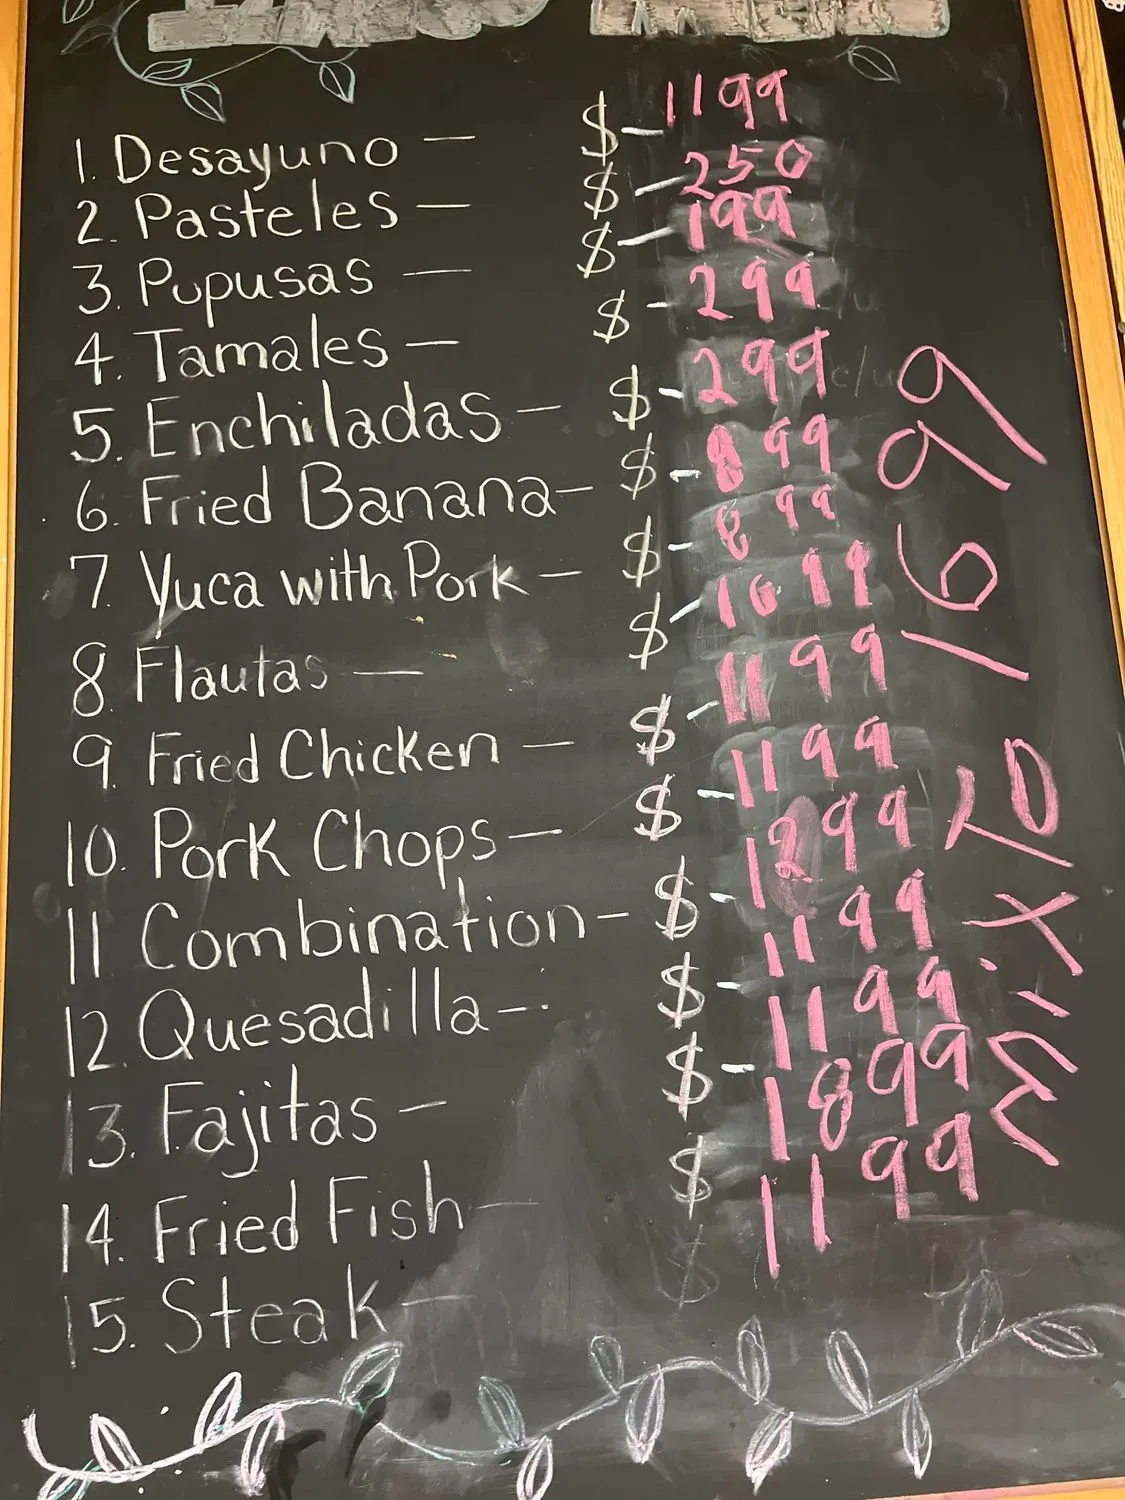 1. Desayuno — $ - 1199
2. Pasteles — $ - 250
3. Pupusas — $ - 199
4. Tamales — $ - 299
5. Enchiladas — $ - 299
6. Fried Banana — $ - 899
7. Yuca with Pork — $ - 899
8 Flautas — $ - 1099
9. Fried Chicken — $ - 1199
10. Pork Chops — $ - 1199
11 Combination — $ - 1299
12. Quesadilla - $ - 1199
13. Fajitas — $ - 1199
14. Fried Fish — $ 1899
15. Steak — $ 1199
mixTO 1699